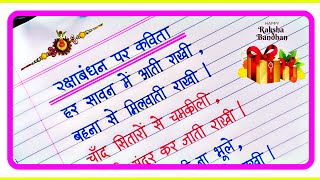 रक्षाबंधन पर कविता
हर सावन में आती राखी,
बहना से मिलवाती राखी।
चाँद सितारों से चमकीली,
कर जाती राखी।
भूले,
HAPPY
Raksha
Bandhan